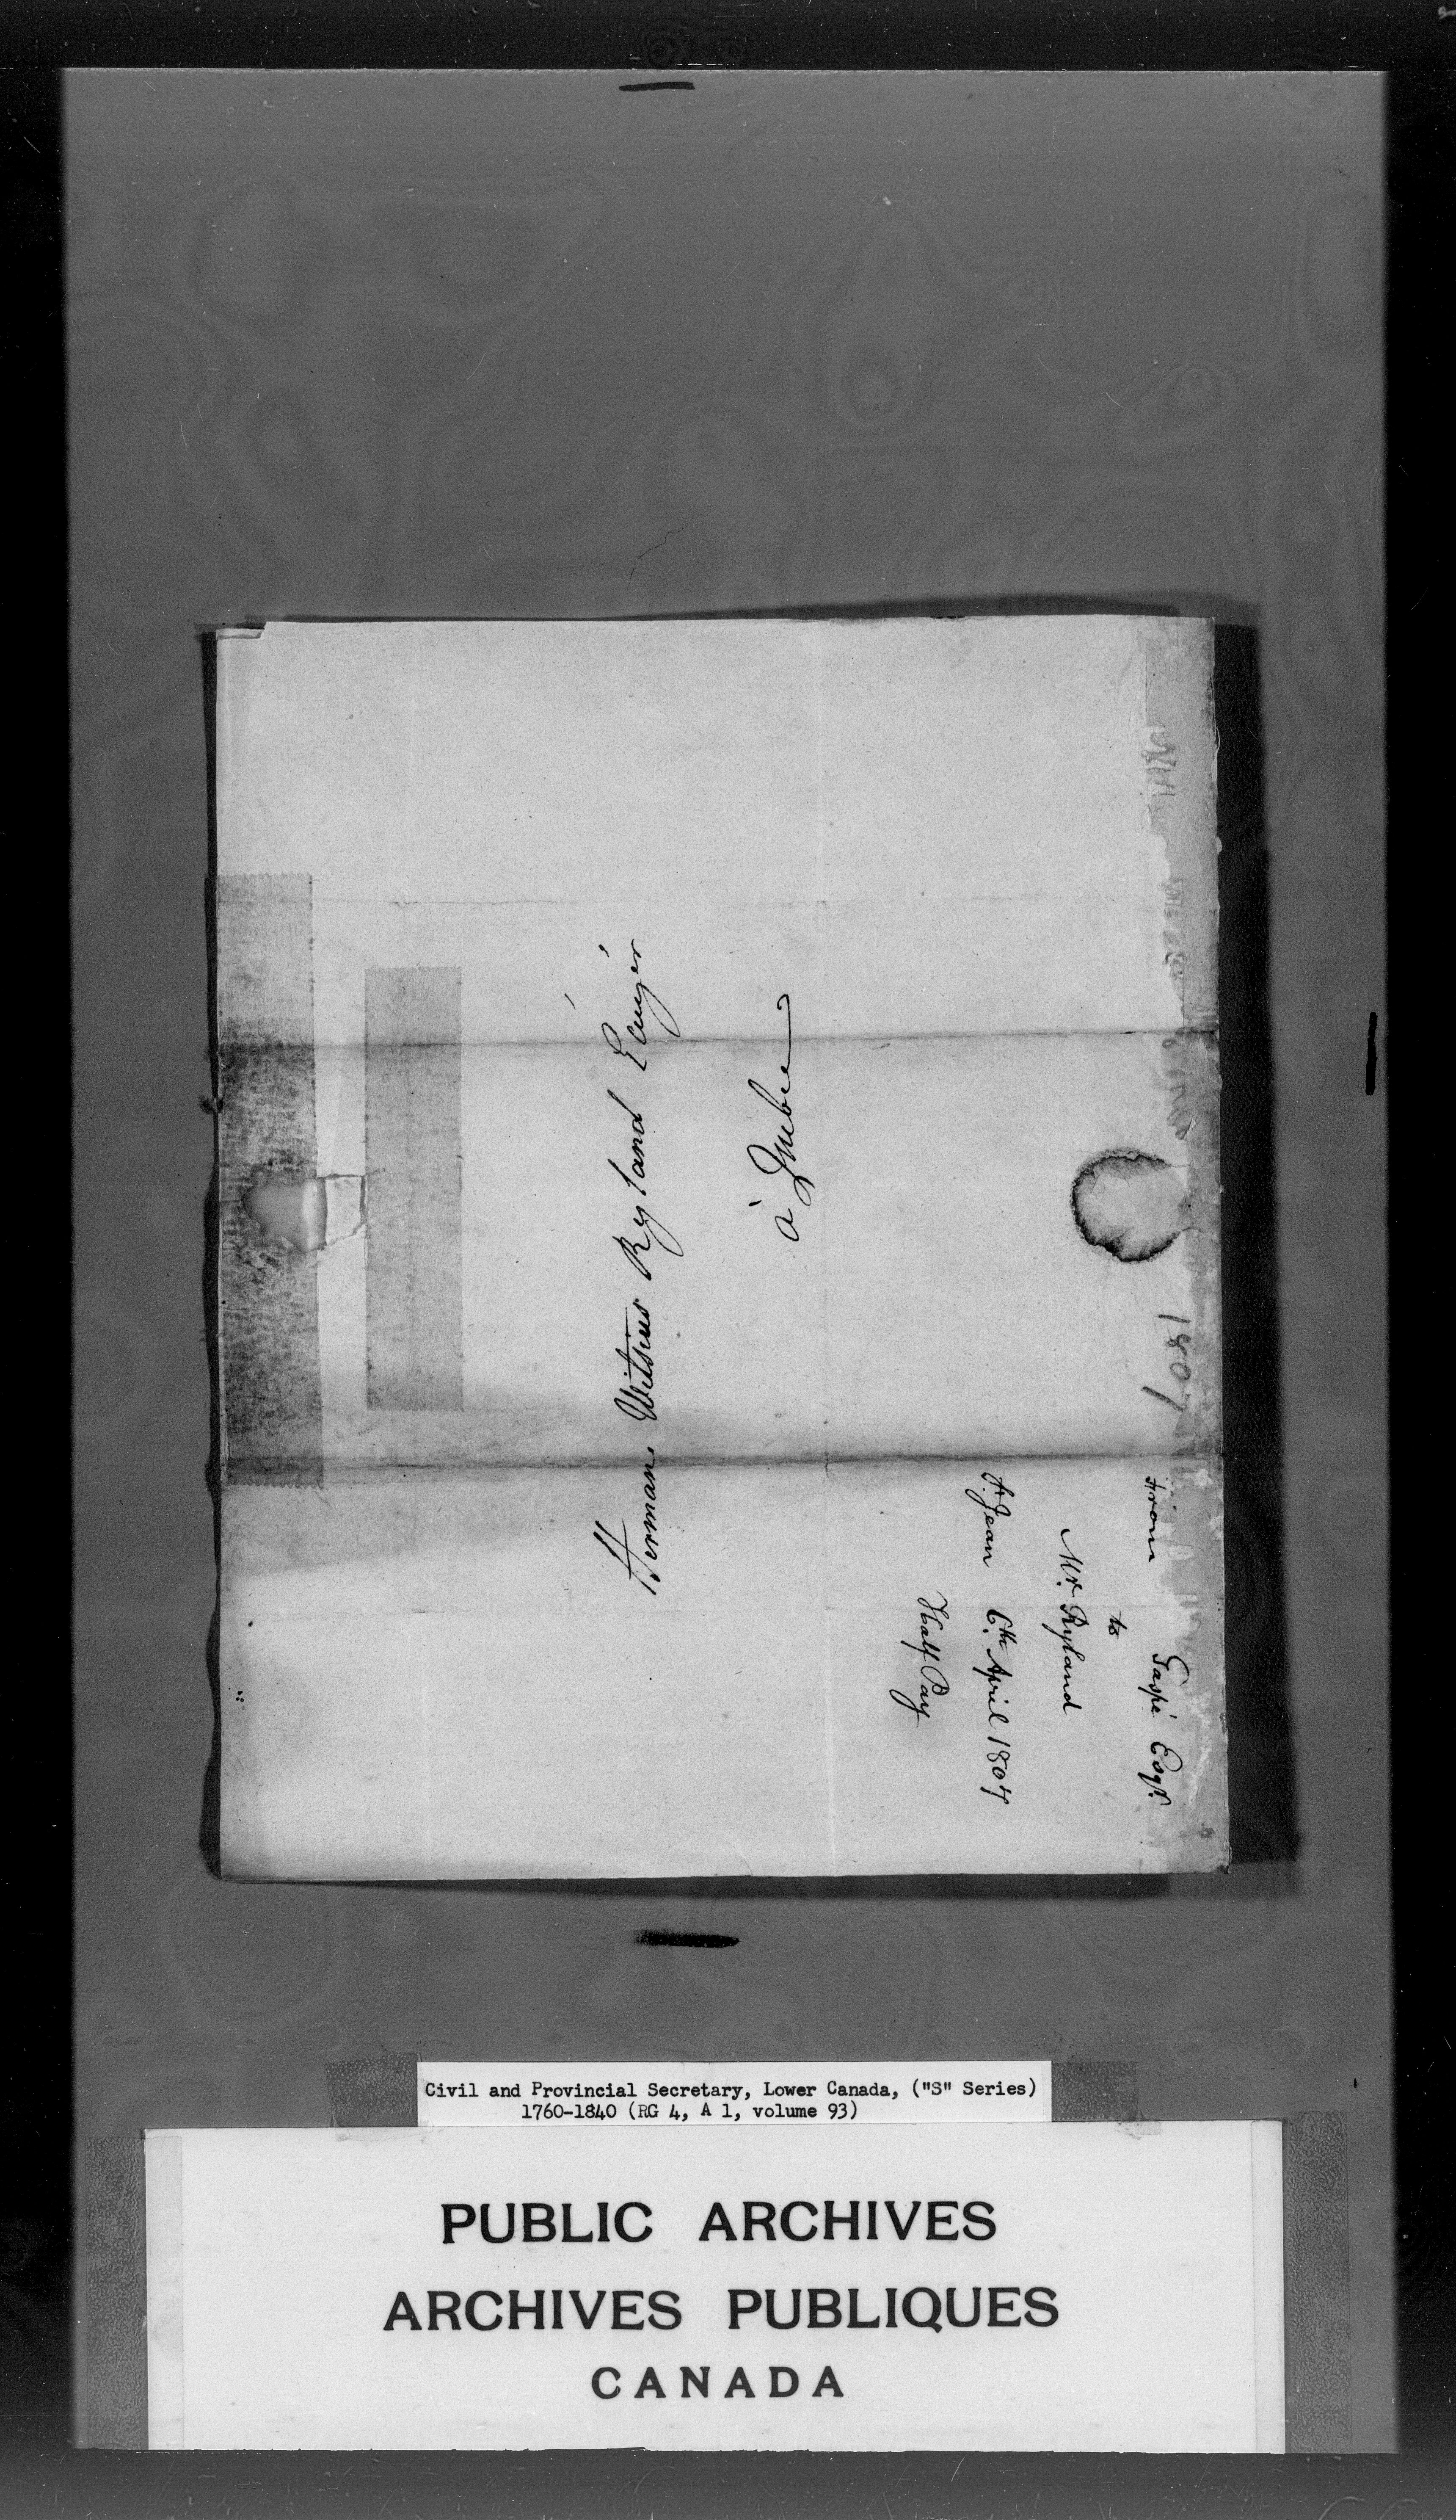 Herman Witsius Ryland Ecuyér
à Quebec
1807
from Gaspé Esqr.
to
Mr. Ryland
St. Jean 6th. April 1807
Half Pay
Civil and Provincial Secretary, Lower Canada, ("S" Series)
1760-1840 (RG 4, A 1, volume 93)
PUBLIC ARCHIVES
ARCHIVES PUBLIQUES
CANADA